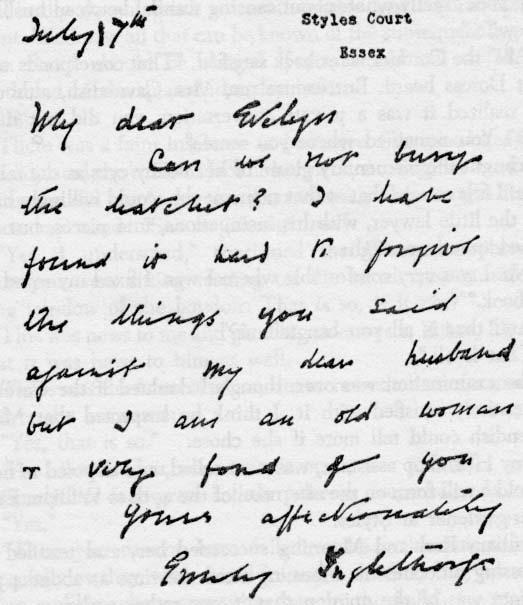 Styles Court
Essex
July 17th
My dear Evelyn
Can we not bury
the hatchet? I have
found it hard to forgive
the things you said
against my dear husband
but I am an old woman
& very fond of you
Yours affectionately
Emily Inglethorp